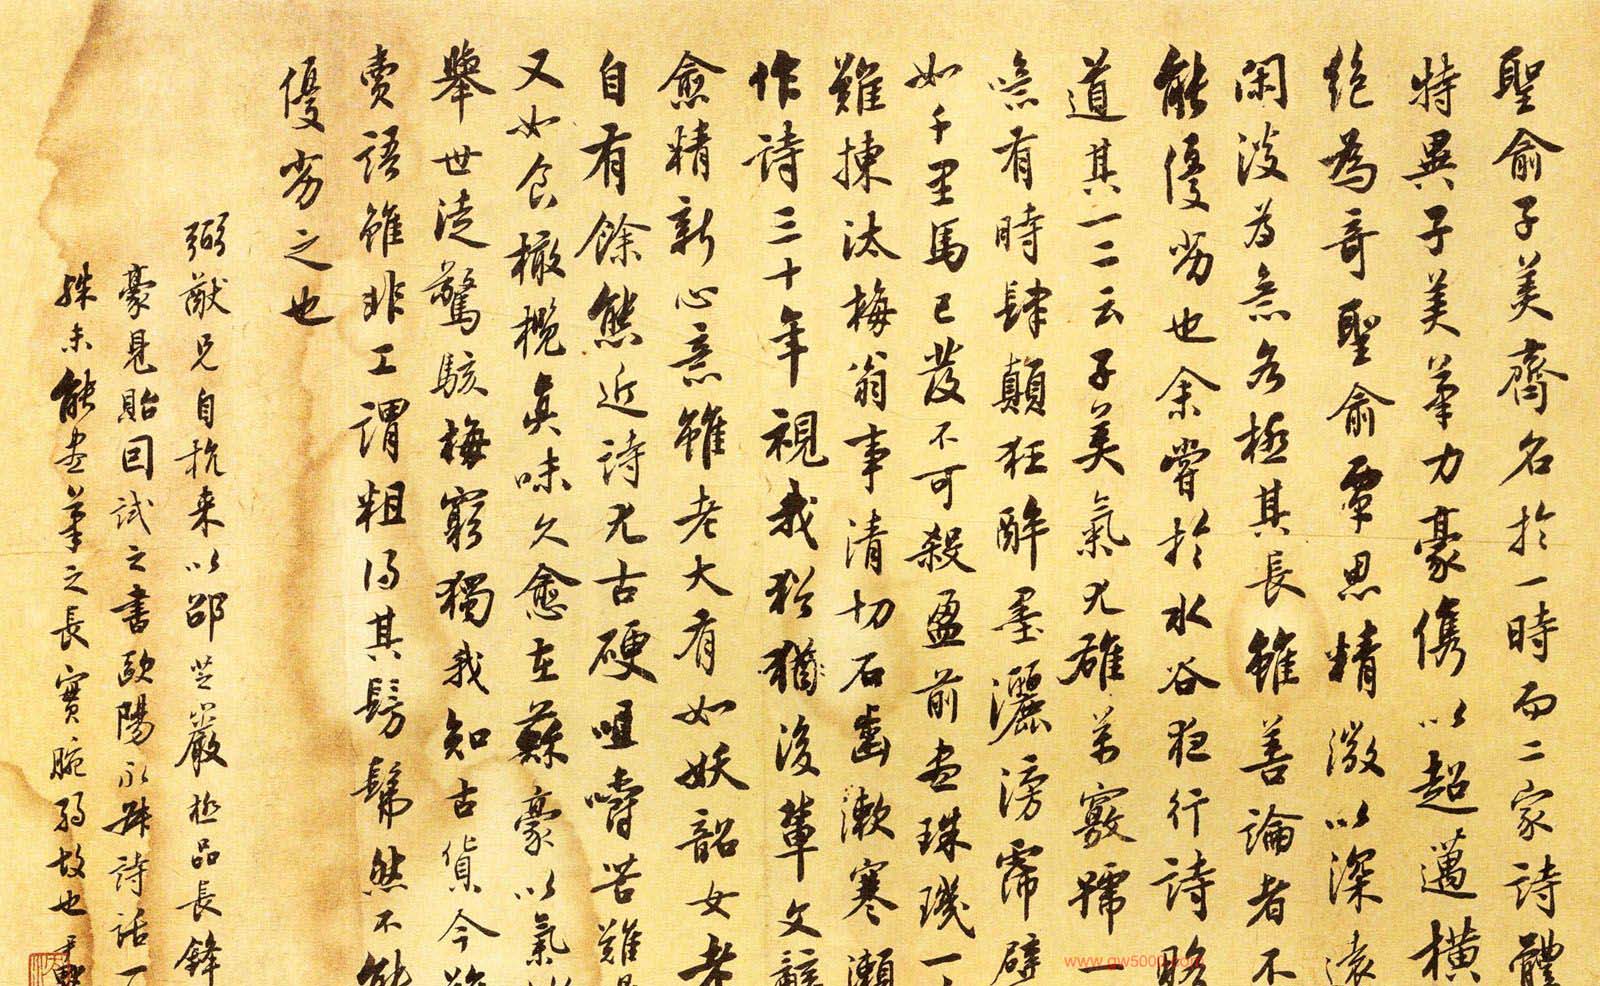 聖俞子美齊名於一時而二家詩體
特異子美筆力豪儁以超邁橫
絕為奇聖俞覃思精微以深遠
閑淡為意各極其長雖善論者不
能優劣也余嘗於水谷夜行詩略
道其一二云子美氣尤雄萬竅號一
噫有時肆顛狂醉墨灑滂霈譬
如千里馬已發不可殺盈前盡珠璣一
難揀汰梅翁事清切石齒漱寒瀬
作詩三十年視我猶後輩文辭
愈精新心意雖老大有如妖韶女老
自有餘態近詩尤古硬咀嚼苦難
又如食橄欖真味久愈在蘇豪以氣
舉世徒驚駭梅窮獨我知古貨今難
賣語雖非工謂粗得其髣髴然不能
優劣之也
弼猷兄自杭来以邵芝巖極品長鋒
豪見貽回試之書歐陽永叔詩話一
殊未能盡筆之長實腕弱故也
www.gw500.com